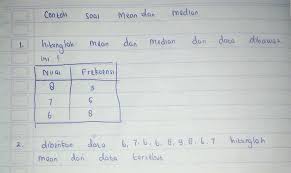 Contoh soal mean dan median
1. hitunglah mean dan median dari data dibawah
ini !
Nilai Frekuensi
8
7 5
6 8
2. diberikan data 6, 7, 6, 6, 8, 9, 8, 6, 7 hitunglah
mean dari data tersebut